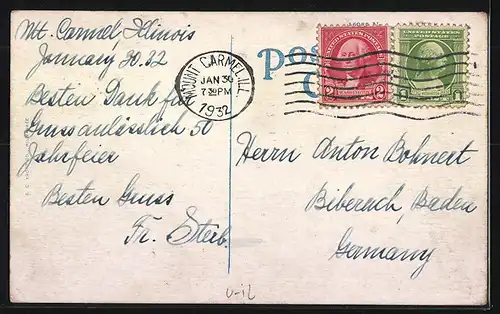 Mt. Carmel, Illinois
January 30. 32
Besten Dank für
Gruss anlässlich 50
Jahrfeier
Besten Gruss
Fr. Steeb.
MOUNT CARMEL, ILL.
JAN 30
7 30 PM
1932
UNITED STATES POSTAGE
WASHINGTON
2 2
UNITED STATES POSTAGE
1 1
Herrn Anton Bohnert
Biberach, Baden
Germany